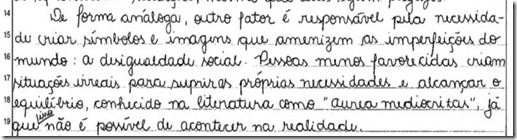 14 De forma análoga, outro fator é responsável pela necessida-
15 de criar símbolos e imagens que amenizem as imperfeições do
16 mundo: a desigualdade social. Pessoas menos favorecidas criam
17 situações irreais para suprir as próprias necessidades e alcançar o
18 equilíbrio, conhecido na literatura como "aurea mediocritas", já
isso
19 que não é possível de acontecer na realidade.